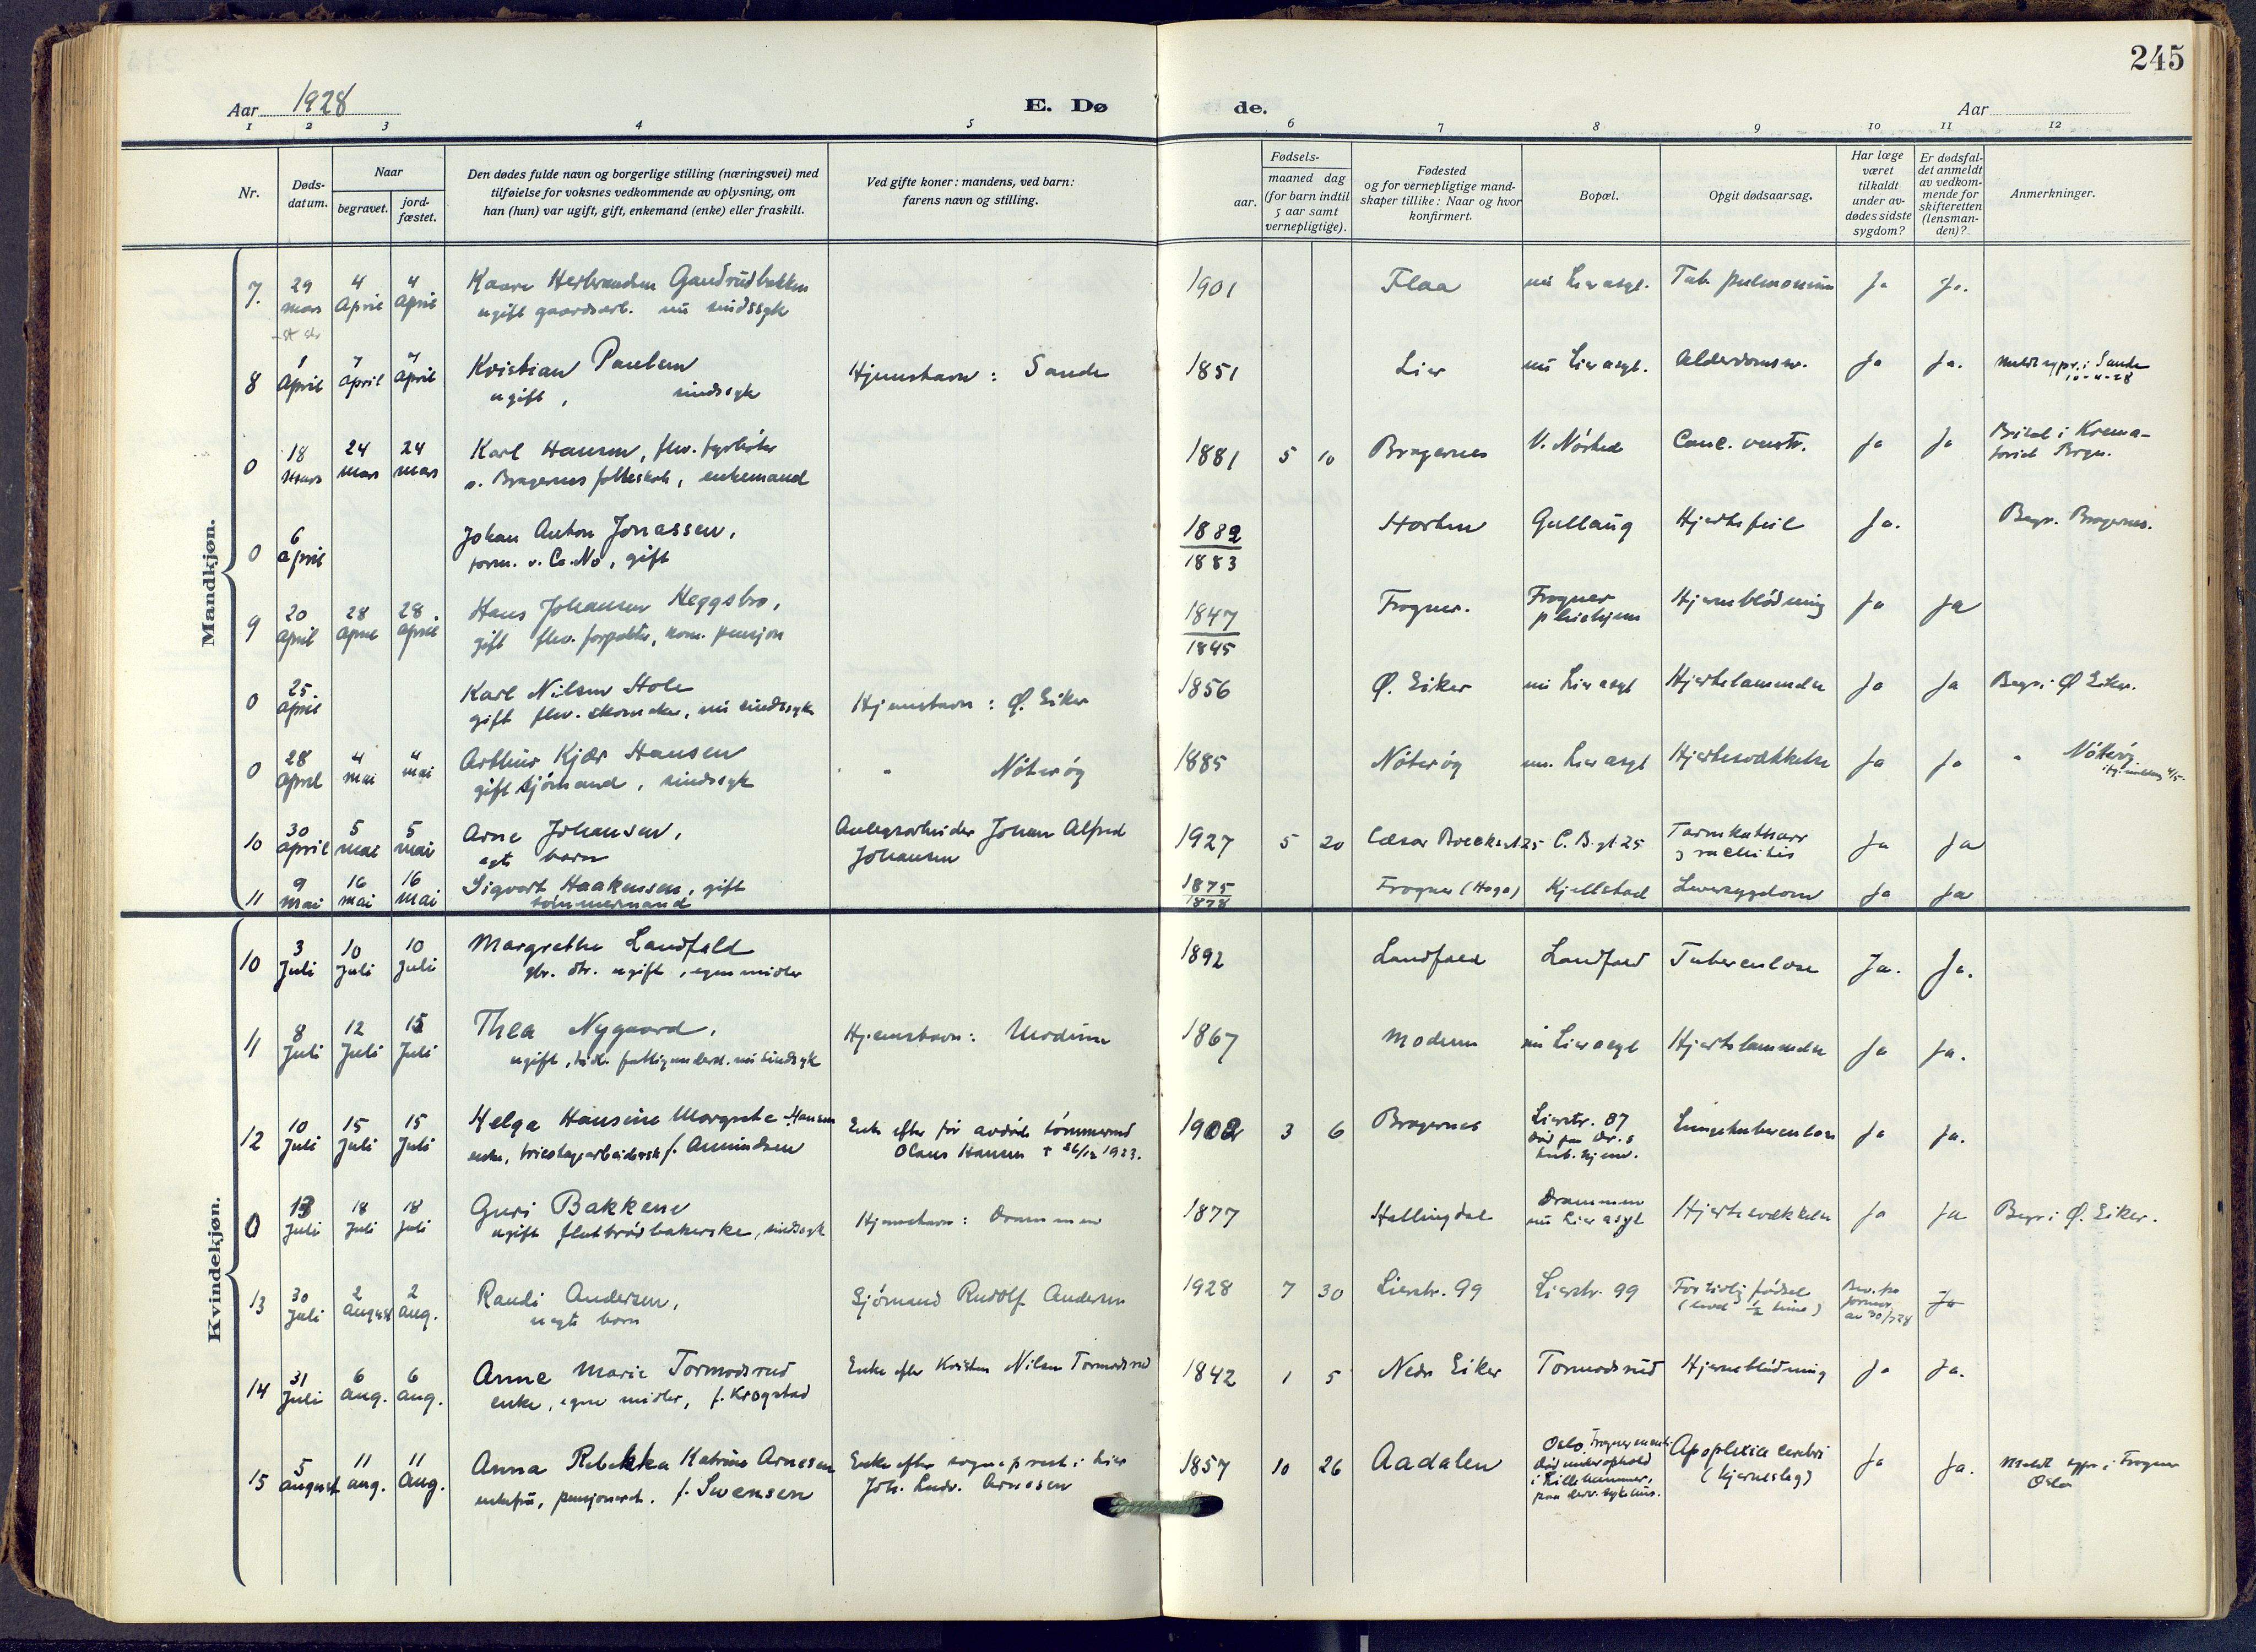 245
Aar 1928
E. Dø
de.
Aar
1 2 3 4 5 6 7 8 9 10 11 12
Nr.
Døds-
datum.
Naar
begravet.
jord-
fæstet.
Den dødes fulde navn og borgerlige stilling (næringsvei) med
tilføielse for voksnes vedkommende av oplysning, om
han (hun) var ugift, gift, enkemand (enke) eller fraskilt.
Ved gifte koner: mandens, ved barn:
farens navn og stilling.
Fødsels-
aar.
maaned dag
(for barn indtil
5 aar samt
vernepligtige).
Fødested
og for vernepligtige mand-
skaper tillike: Naar og hvor
konfirmert.
Bopæl.
Opgit dødsaarsag.
Har læge
været
tilkaldt
under av-
dødes sidste
sygdom?
Er dødsfal-
det anmeldt
av vedkom-
mende for
skifteretten
(lensman-
den)?
Anmerkninger.
Mandkjøn.
7. 29 mars 4 April 4 april Kaare Gandrudbakken 1901 Flaa nu Lier asyl. Tub. pulmonum Ja Ja.
ugift gaardsarb. nu sindssyk
8 1 April 7 april 7 april Kristian Paulsen Hjemstavn: Sande 1851 Lier nu Lier asyl. Ja Ja. i Sande
ugift, sindssyk 10-4-28
0 18 mars 24 mars 24 mars Karl Hansen, fhv. fyrbøter 1881 5 10 Bragernes V. Nøsted Canc. ventr. Ja Ja i Krema-
v. Bragernes folkeskole, enkemand toriet Brgn.
0 6 april Johan Anton Jonassen, 1882 Horten Gullaug Hjertefeil Ja. Begr. Bragernes.
form. v. Co. No, gift 1883
9 20 April 28 April 28 April Hans Johansen Heggsbro, 1847 Frogner. Frogner pleiehjem Hjerneblødning Ja Ja
gift fhv. forpakter, kom. pensjon 1845
0 25. april Karl Nilsen Hole Hjemstavn: Ø. Eiker 1856 Ø. Eiker nu Lier asyl Hjertelammelse Ja Ja Begr. i Ø Eiker.
gift fhv. skomaker, nu sindssyk
0 28 April 4 mai 4 mai Arthur Kjær Hansen " Nøterøy 1885 Nøterøy nu Lier asyl Hjertesvækkelse Ja Ja " Nøterøy
gift sjømand, sindssyk
10 30 april 5 mai 5 mai Arne Johansen, Anlegsarbeider Johan Alfred 1927 5 20 Cæsar Boecksgt 25 C. B. gt 25 Tarmkatharr Ja Ja
egte barn Johansen og rachitis
11 9 mai 16 mai 16 mai Sigvart Haakensen, gift 1875 Frogner (Haga) Kjellstad Leversygdom Ja Ja
tømmermand 1878
Kvindekjøn.
10 3 Juli 10 Juli 10 Juli Margrethe Landfald 1892 Landfald Landfald Tuberculose Ja. Ja.
gbr. dtr. ugift, egne midler
11 8 Juli 12 Juli 15 Juli Thea Nygaard, Hjemstavn: Modum 1867 Modum nu Lier asyl Hjertelammelse Ja Ja.
ugift, tidl. fattigunderst. nu sindssyk
12 10 Juli 15 Juli 15 Juli Helga Hansine Margrete Hansen Enke efter før avdøde tømmermd 1902 3 6 Bragernes Lierstr. 87 Lungetuberculose Ja Ja.
enke, f. Amundsen Olaus Hansen † 26/12 1923. død paa Dr.s tub. hjem.
0 13 Juli 18 Juli 18 Juli Guri Bakkene Hjemstavn: Drammen 1877 Hallingdal Drammen nu Lier asyl Hjertesvækkelse Ja Ja Begr i Ø. Eiker.
ugift flatbrødbakerske, sindssyk
13 30 Juli 2 august 2 aug. Randi Andersen, Sjømand Rudolf Andersen 1928 7 30 Lierstr. 99 Lierstr. 99 For tidlig fødsel Bev. fra jormor av 30/7 28 Ja
uegte barn (levet ½ time)
14 31 Juli 6 aug. 6 aug. Anne Marie Tormodsrud Enke efter Kristen Nilsen Tormodsrud 1842 1 5 Nedre Eiker Tormodsrud Hjerneblødning Ja Ja.
enke, egne midler, f. Krogstad
15 5 august 11 aug. 11 Aug. Anna Rebekka Katrine Arnesen Enke efter sogneprest i Lier 1857 10 26 Aadalen Oslo, Frogner menigh. Apoplexia cerebri Ja Ja. i Frogner
enkefru, pensjonert. f. Svensen Joh. Ludv. Arnesen død under ophold i Lillehammer, paa derv. sykehus. (hjerneslag) Oslo